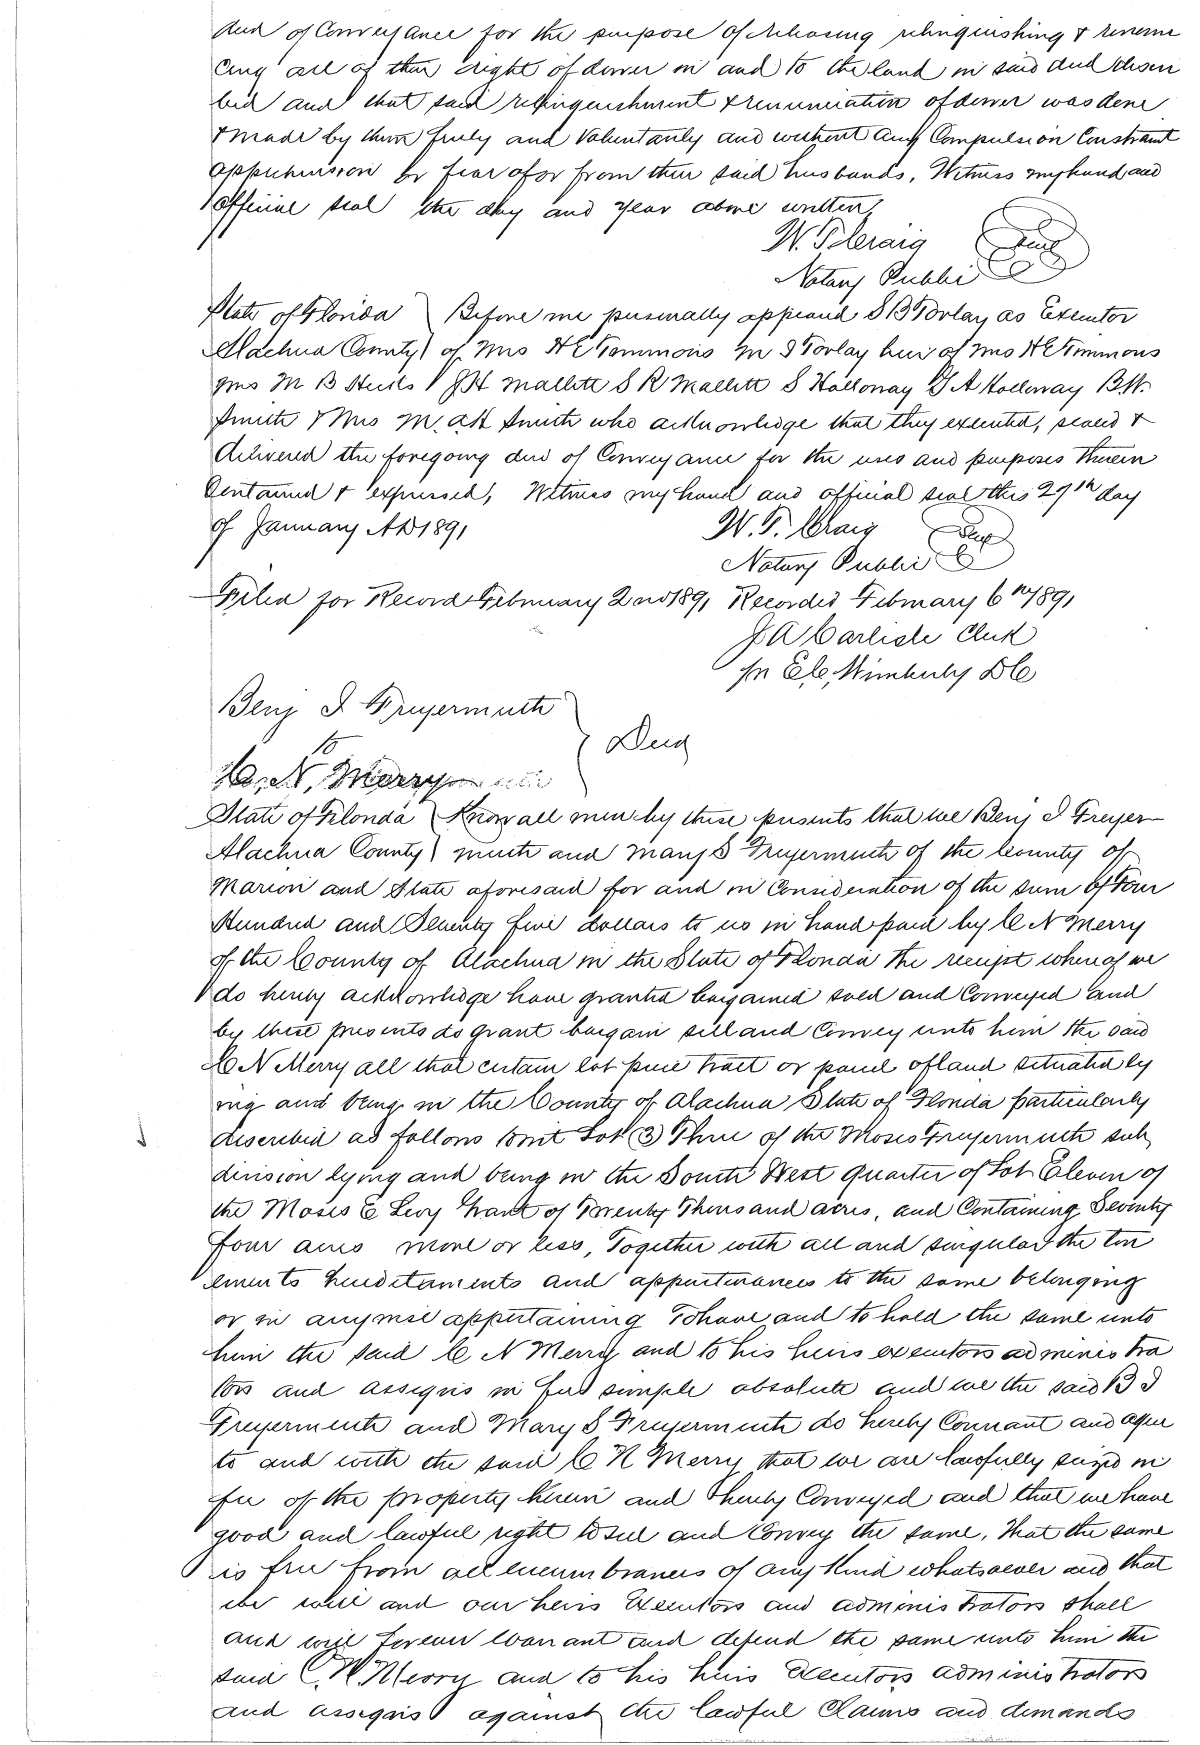 deed of Conveyance for the purpose of releasing relinquishing & renoun
cing all of their right of dower in and to the land in said deed descri
bed and that said relinquishment & renunciation of dower was done
& made by them freely and Voluntarily and without any Compulsion Constraint
apprehension or fear of or from their said husbands, Witness my hand and
Official seal the day and year above written,
W. F. Craig Seal
Notary Public
State of Florida } Before me personally appeared S B Torlay as Executor
Alachua County } of Mrs H E Timmons M J Torlay heir of Mrs H E Timmons
Mrs M B J H Mallett S R Mallett S Holloway A Holloway B. W.
Smith & Mrs M. A H Smith who acknowledge that they executed, sealed &
delivered the foregoing deed of Conveyance for the uses and purposes therein
Contained & expressed, Witness my hand and official seal this 29th day
of January AD 1891
W. F. Craig Seal
Notary Public
Filed for Record February 2nd 1891 Recorded February 6th 1891
J A Carlisle Clerk
pr E. C. Wimberly D C
Benj I Freyermuth
to } Deed
C. N. Merry
State of Florida } Know all men by these presents that we Benj I Freyer
Alachua County } muth and Mary S Freyermuth of the County of
Marion and State aforesaid for and in Consideration of the sum of Four
Hundred and Seventy five dollars to us in hand paid by C N Merry
of the County of Alachua in the State of Florida the receipt whereof we
do hereby acknowledge have granted bargained sold and Conveyed and
by these presents do grant bargain sell and Convey unto him the said
C N Merry all that certain lot piece tract or parcel of land situated ly
ing and being in the County of Alachua State of Florida particularly
discribed as follows to wit Lot (3) Three of the Moses Freyermuth sub
division lying and being in the South West quarter of Lot Eleven of
the Moses E Levy Grant of Twenty Thousand acres, and Containing Seventy
four acres more or less, Together with all and singular the ten
ements hereditaments and appurtenances to the same belonging
or in anywise appertaining To have and to hold the same unto
him the said C N Merry and to his heirs executors administra
tors and assigns in fee simple absolute and we the said B I
Freyermuth and Mary S Freyermuth do hereby Covenant and agree
to and with the said C N Merry that we are lawfully seized in
fee of the property herein and hereby Conveyed and that we have
good and lawful right to sell and Convey the same. That the same
is free from all encumbrances of any Kind whatsoever and that
we will and our heirs Executors and administrators shall
and will forever Warrant and defend the same unto him the
said C. N. Merry and to his heirs Executors administrators
and assigns against the lawful Claims and demands